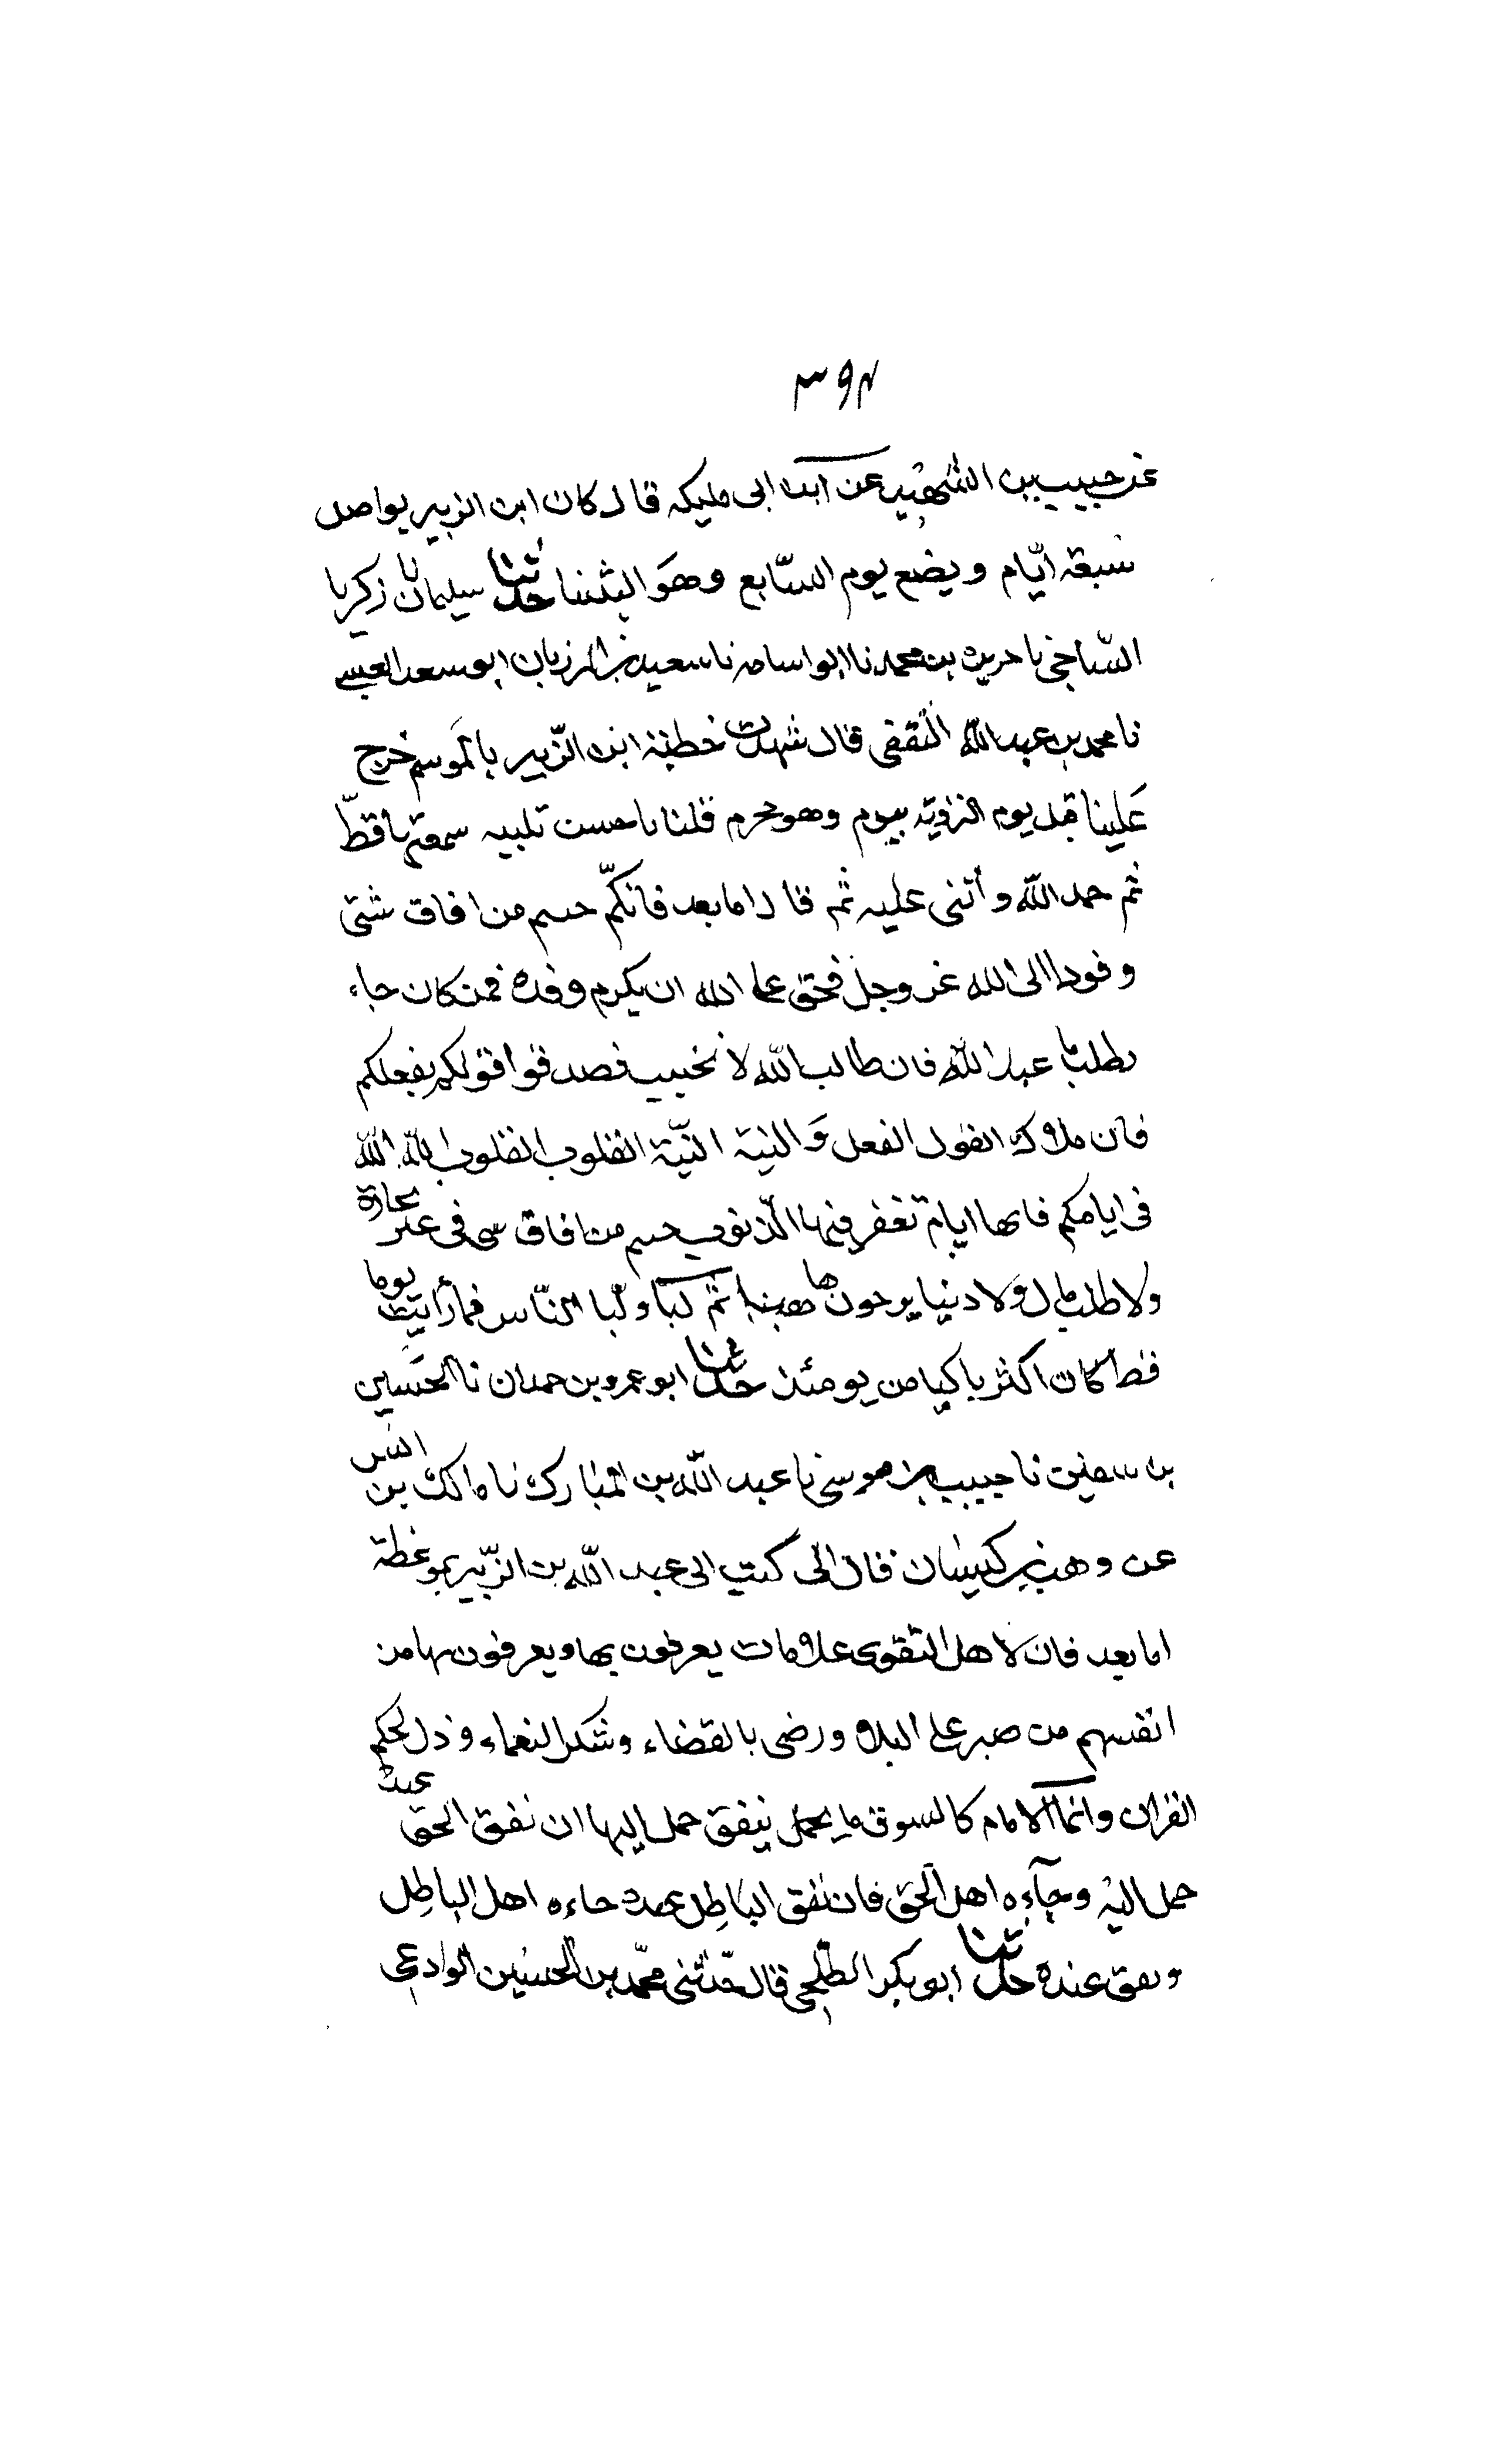 ٣٩٢
عن حبيب بن الشهيد عن ابن ابى مليكه قال كان ابن الزبير يواصل
سبعة ايّام و يضع يوم السّابع وهو اليثنا حدثنا سليمان نا زكريا
السّاجى نا بن محمد نا ابو اسامه نا سعيد بن المرزبان ابو سعد العبسے
نا محمد بن عبد الله الثقفى قال شهدت خطبة ابن الزّبير بالموسم خرج
علينا قبل يوم التروية بيوم وهو محرم فلبا باحسن تلبيه سمعتها قطّ
ثم حمد الله و أثنى عليه ثم قال اما بعد فانكّم حىىم من افاق شتى
وفودا الى الله عز وجل فحق على الله ان يكرم وفده فمن كان جاء
يطلب ما عبد الله فان طالب الله لا يخيب فصدقوا قولكم بفعلكم
فان ملاك القول الفعل وَ النية النّية القلوب القلوب الله الله
فى ايامكم فانها ايام تغفر فيها الذنوب حىىم من افاق ىىى فى غير تجارة
ولا طلب مال ولا دنيا يرجون ها هنا ثم لبا ولبا النّاس فما رأيت يوما
قط كان اكثر باكيا من يومئذ حدثنا ابو عمرو بن حمدان نا الحسين
بن سفين نا حبيب بن موسى نا عبد الله بن المبارك نا مالك بن انس
عن وهب بن كيسان قال الى كتب الى عبد الله بن الزّبير بموعظة
اما بعد فان لاهل التقوى علامات يعرفون بها ويعرفونها من
انفسهم من صبر على البلا ورضى بالقضاء وشكر النعماء و ذل لحكم
القران وانما الامام كالسوق ما يحمل ينفق حمل اليها ان نفق الحق عنده
حمل اليه وجآءه اهل الحق فان نفق الباطل عىده جاءه اهل الباطل
وىفق عنده حدثنا ابو بكر الطلحى قال حدّثنى محمّد بن الحسين الوادعى